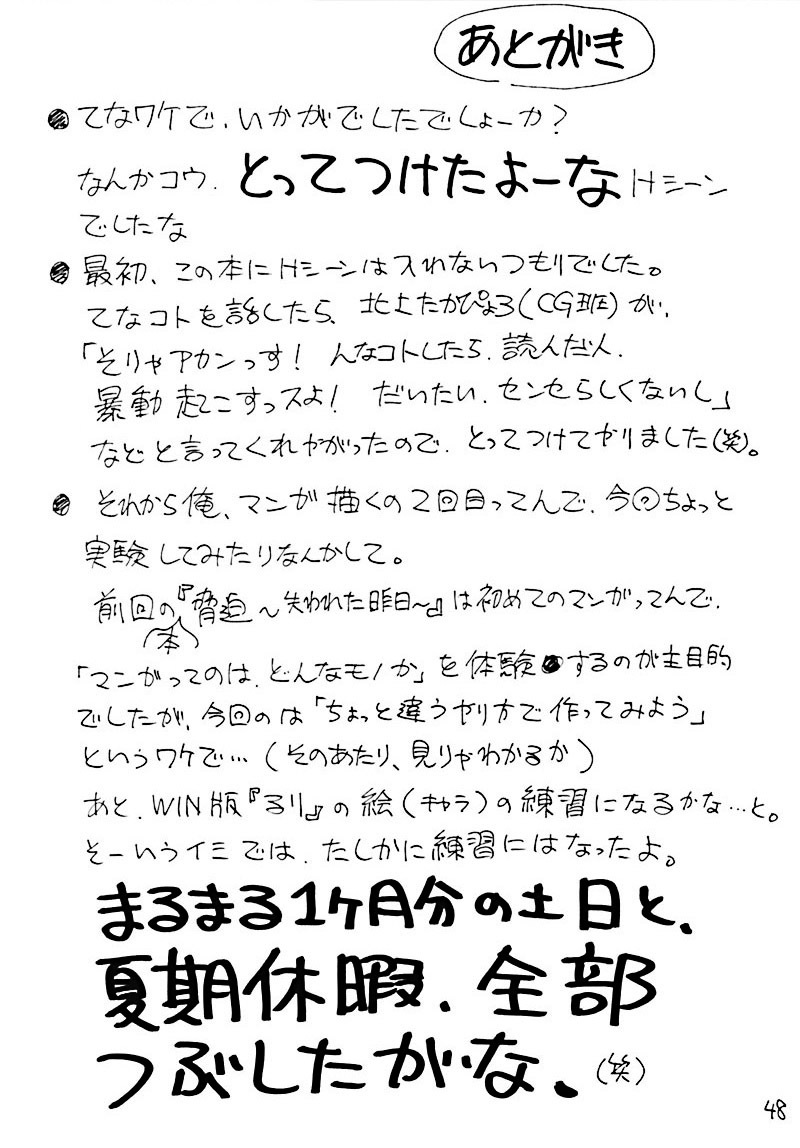 あとがき
●てなワケで、いかがでしたでしょーか？
なんかコウ、とってつけたよーなHシーン
でしたな
●最初、この本にHシーンは入れないつもりでした。
てなコトを話したら、北上たかぴょろ(CG班)が、
「そりゃアカンっす！ んなコトしたら、読んだ人、
暴動起こすっスよ！ だいたい、センセらしくないし」
などと言ってくれやがったので、とってつけてやりました(笑)。
●それから俺、マンガ描くの2回目ってんで、今回ちょっと
実験してみたりなんかして。
前回の本『脅迫～失われた昨日～』は初めてのマンガってんで、
「マンガってのは、どんなモノか」を体験するのが主目的
でしたが、今回のは「ちょっと違うやり方で作ってみよう」
というワケで…(そのあたり、見りゃわかるか)
あと、WIN版『るり』の絵(キャラ)の練習になるかな…と。
そーいうイミでは、たしかに練習にはなったよ。
まるまる1ヶ月分の土日と、
夏期休暇、全部
つぶしたがな、(笑)
48